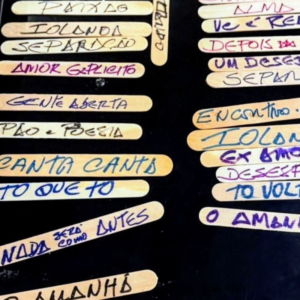 PAIXÃO
IOLANDA
SEPARAÇÃO
AMOR EXPLICITO
GENTE ABERTA
PÃO e POESIA
CANTA CANTA
TO QUE TO
NADA SERÁ COMO ANTES
AMANHÃ
ALMA
VC É RE
DEPOIS DA
UM DESEJ
SEPAR
ENCONTRO
IOLAN
EX AMO
DESESP
TO VOLT
O AMANH